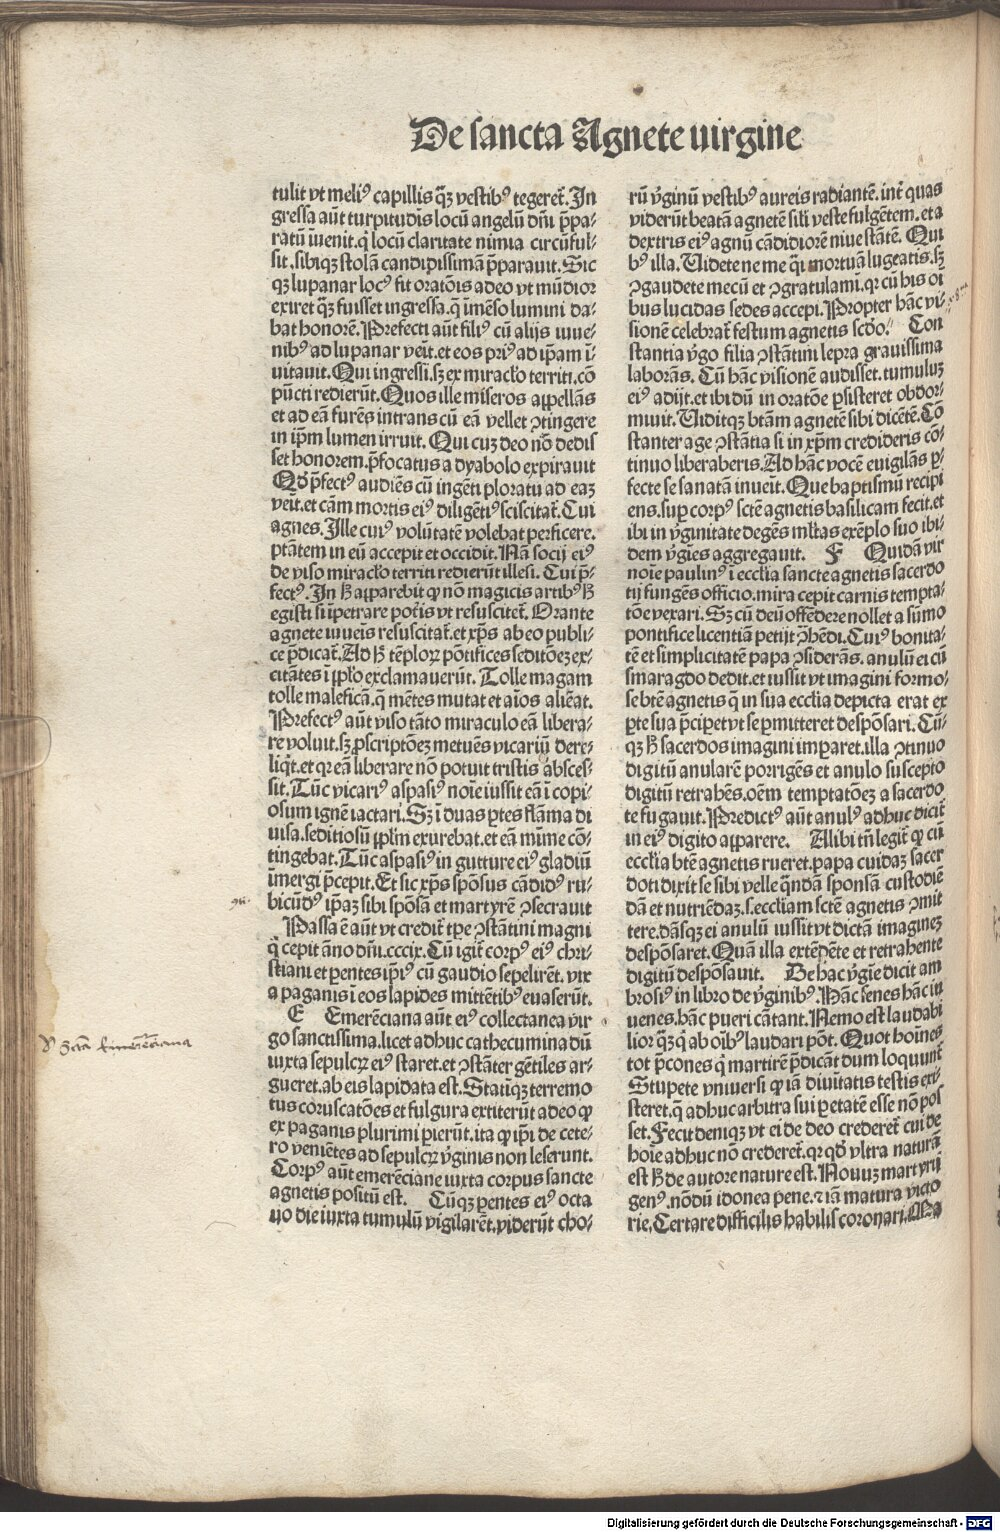 De sancta Agnete uirgine
tulit vt meliꝰ capillis q̃ꝫ vestibꝰ tegeret᷒. In
gressa aũt turpitudis locũ angelũ dñi p̃pa⸗
ratũ ĩuenit. q̇ locũ claritate nimia circũful⸗
sit. sibiqꝫ stolã candidissimã p̃parauit. Sic
qꝫ lupanar locꝰ fit oratõis adeo vt mũdior
exiret q̃ꝫ fuisset ingressa. q̃ ĩmẽso lumini da⸗
bat honorẽ. Prefecti aũt filiꝰ cũ alijs iuue⸗
nibꝰ ad lupanar veĩt. et eos priꝰ ad ip̃am ĩ⸗
uitauit. Qui ingressi. sꝫ ex miraclo territi. cõ
pũcti redierũt. Quos ille miseros appellãs
et ad eã furẽs intrans cũ eã vellet ꝯtingere
in ip̃m lumen irruit. Qui cuꝫ deo nõ dedis
set honorem. p̃focatus a dyabolo expirauit
Qď p̃fectꝰ audiẽs cũ ingẽti ploratu ad eaꝫ
veĩt. et cãm mortis eiꝰ diligẽtiꝰ sciscitat᷒. Cui
agnes. Ille cuiꝰ volũtatẽ volebat perficere.
ptãtem in eũ accepit et occidit. Nã socij eiꝰ
de viso miraclo territi redierũt illesi. Cui p̃⸗
fectꝰ. In ħ apparebit ꝙ nõ magicis artibꝰ ħ
egisti si ĩpetrare pot᷒is vt resuscitet᷒. Orante
agnete iuueis resuscitat᷒. et xp̃s ab eo publi⸗
ce p̃dicat᷒. Ad ħ tẽploꝝ põtifices seditõeꝫ ex⸗
citãtes ĩ pp̃lo exclamauerũt. Tolle magam
tolle maleficã. q̃ mẽtes mutat et aĩos aliẽat.
Prefectꝰ aũt viso tãto miraculo eã libera⸗
re voluit. sꝫ ꝓscriptõeꝫ metuẽs vicariũ dere⸗
liq̇t. et qꝛ eã liberare nõ potuit tristis absces⸗
sit. Tũc vicariꝰ aspasiꝰ noĩe iussit eã ĩ copi⸗
osum ignẽ iactari. Sꝫ ĩ duas ꝑtes flãma di
uisa. seditiosũ pp̃lm exurebat. et eã mĩme cõ⸗
tingebat. Tũc aspasiꝰ in gutture eiꝰ gladiũ
ĩmergi p̃cepit. Et sic xp̃s spõsus cãdidꝰ ru⸗
bicũdꝰ ip̃aꝫ sibi spõsã et martyrẽ ꝯsecrauit
Passa ẽ aũt vt credit᷒ tp̃e ꝯstãtini magni
q̇ cepit ãno dñi. cccix. Cũ igit᷒ corpꝰ eiꝰ chri⸗
stiani et parentes ip̃iꝰ cũ gaudio sepelirẽt. vix
a paganis ĩ eos lapides mittẽtibꝰ euaserũt.
E Emerẽciana aũt eiꝰ collectanea vir
go sanctissima. licet adhuc cathecumina dũ
iuxta sepulcꝝ eiꝰ staret. et ꝯstãter gẽtiles ar⸗
gueret. ab eis lapidata est. Statĩqꝫ terremo
tus coruscatões et fulgura extiterũt adeo ꝙ
ex paganis plurimi ꝑierũt. ita ꝙ ip̃i de cete⸗
ro veniẽtes ad sepulcꝝ v̾ginis non leserunt.
Corpꝰ aũt emerẽciane iuxta corpus sancte
agnetis positũ est. Cũqꝫ ꝑentes eiꝰ octa
uo die iuxta tumulũ vigilarẽt. viderũt cho⸗
rũ v̾ginũ vestibꝰ aureis radiantẽ. int᷒ quas
viderũt beatã agnetẽ sil̃i veste fulgẽtem. et a
dextris eiꝰ agnũ cãdidiorẽ niue stãtẽ. Qui
bꝰ illa. Videte ne me q̃si mortuã lugeatis. sꝫ
ꝯgaudete mecũ et ꝯgratulamĩ. qꝛ cũ his oĩ
bus lucidas sedes accepi. Propter hãc vi⸗
sionẽ celebrat᷒ festum agnetis scďo. Con
stantia v̾go filia ꝯstãtini lepra grauissima
laborãs. Cũ hãc visionẽ audisset. tumuluꝫ
eiꝰ adijt. et ibi dũ in oratõe ꝑsisteret obdor⸗
miuit. Viditqꝫ btãm agnetẽ sibi dicẽtẽ. Cõ
stanter age ꝯstãtia si in xp̃m credideris cõ⸗
tinuo liberaberis. Ad hãc vocẽ euigilãs ꝑ⸗
fecte se sanatã inueĩt. Que baptismũ recipi
ens. suꝑ corpꝰ sctẽ agnetis basilicam fecit. et
ibi in v̾ginitate degẽs mltas exẽplo suo ibi⸗
dem v̾gies aggregauit. F Quidã vir
noĩe paulinꝰ ĩ ecclia sancte agnetis sacerdo
tij fungẽs officio. mira cepit carnis tempta⸗
tõe vexari. Sꝫ cũ deũ offẽdere nollet a sũmo
pontifice licentiã petijt ꝯhẽdi. Cuiꝰ bonita⸗
tẽ et simplicitatẽ papa ꝯsiderãs. anulũ ei cũ
smaragdo dedit. et iussit vt imagini formo⸗
se btẽ agnetis q̃ in sua ecclia depicta erat ex
ꝑte sua p̃ciꝑet vt se ꝑmitteret despõsari. Cũ⸗
qꝫ ħ sacerdos imagini imparet. illa ꝯtinuo
digitũ anularẽ porrigẽs et anulo suscepto
digitũ retrahẽs. oẽm temptatõeꝫ a sacerdo
te fugauit. Predictꝰ aũt anulꝰ adhuc dicit᷒
in eiꝰ digito apparere. Alibi tñ legit᷒ ꝙ cũ
ecclia btẽ agnetis rueret. papa cuidaꝫ sacer
doti dixit se sibi velle q̃ndã sponsã custodiẽ
dã et nutriẽdaꝫ. s. eccliam sctẽ agnetis ꝯmit
tere. dãsqꝫ ei anulũ iussit vt dictã imagineꝫ
despõsaret. Quã illa extẽdẽte et retrahente
digitũ despõsauit. De hac v̾gie dicit am
brosiꝰ in libro de v̾ginibꝰ. Hãc senes hãc iu
uenes. hãc pueri cãtant. Nemo est laudabi
lior q̃ꝫ q̇ ab oĩbꝰ laudari põt. Quot hoĩnes
tot p̃cones q̇ martirẽ p̃dicãt dum loquunt᷒
Stupete vniuersi ꝙ iã diuĩtatis testis exi⸗
steret. q̃ adhuc arbitra sui ꝑ etatẽ esse nõ pos
set. Fecit deniqꝫ vt ei de deo crederet᷒ cui de
hoĩe adhuc nõ crederet᷒. qꝛ qď vltra naturã
est ħ de autore nature est. Nouuꝫ martyrij
genꝰ. nõdũ idonea pene. ⁊ iã matura victo
rie. Certare difficilis habilis coronari. Ma
Digitalisierung gefördert durch die Deutsche Forschungsgemeinschaft - DFG